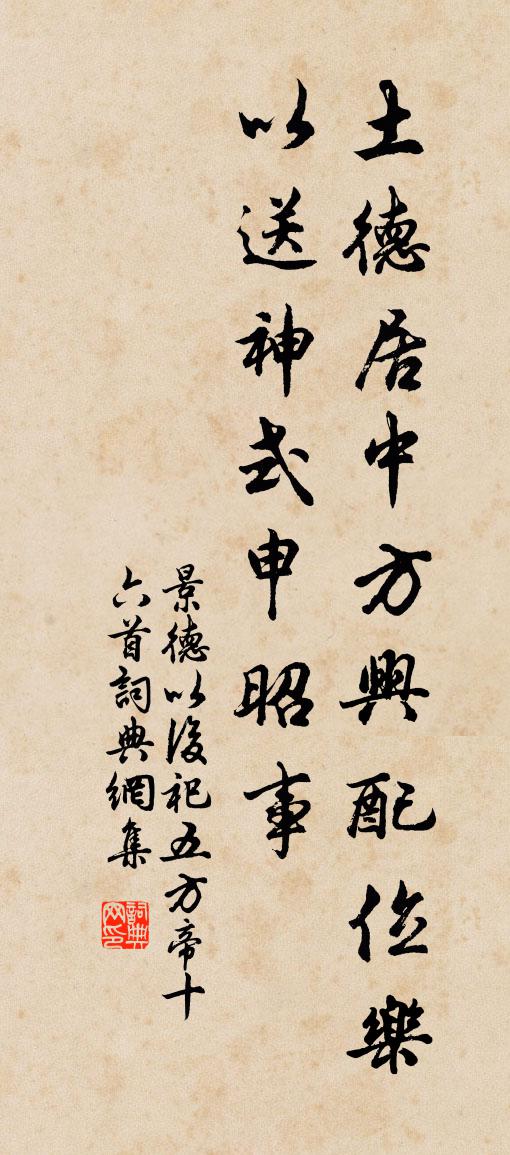 土德居中方輿配位樂
以送神式申昭事
景德以後祀五方帝十
六首詞典網集
詞典
网印